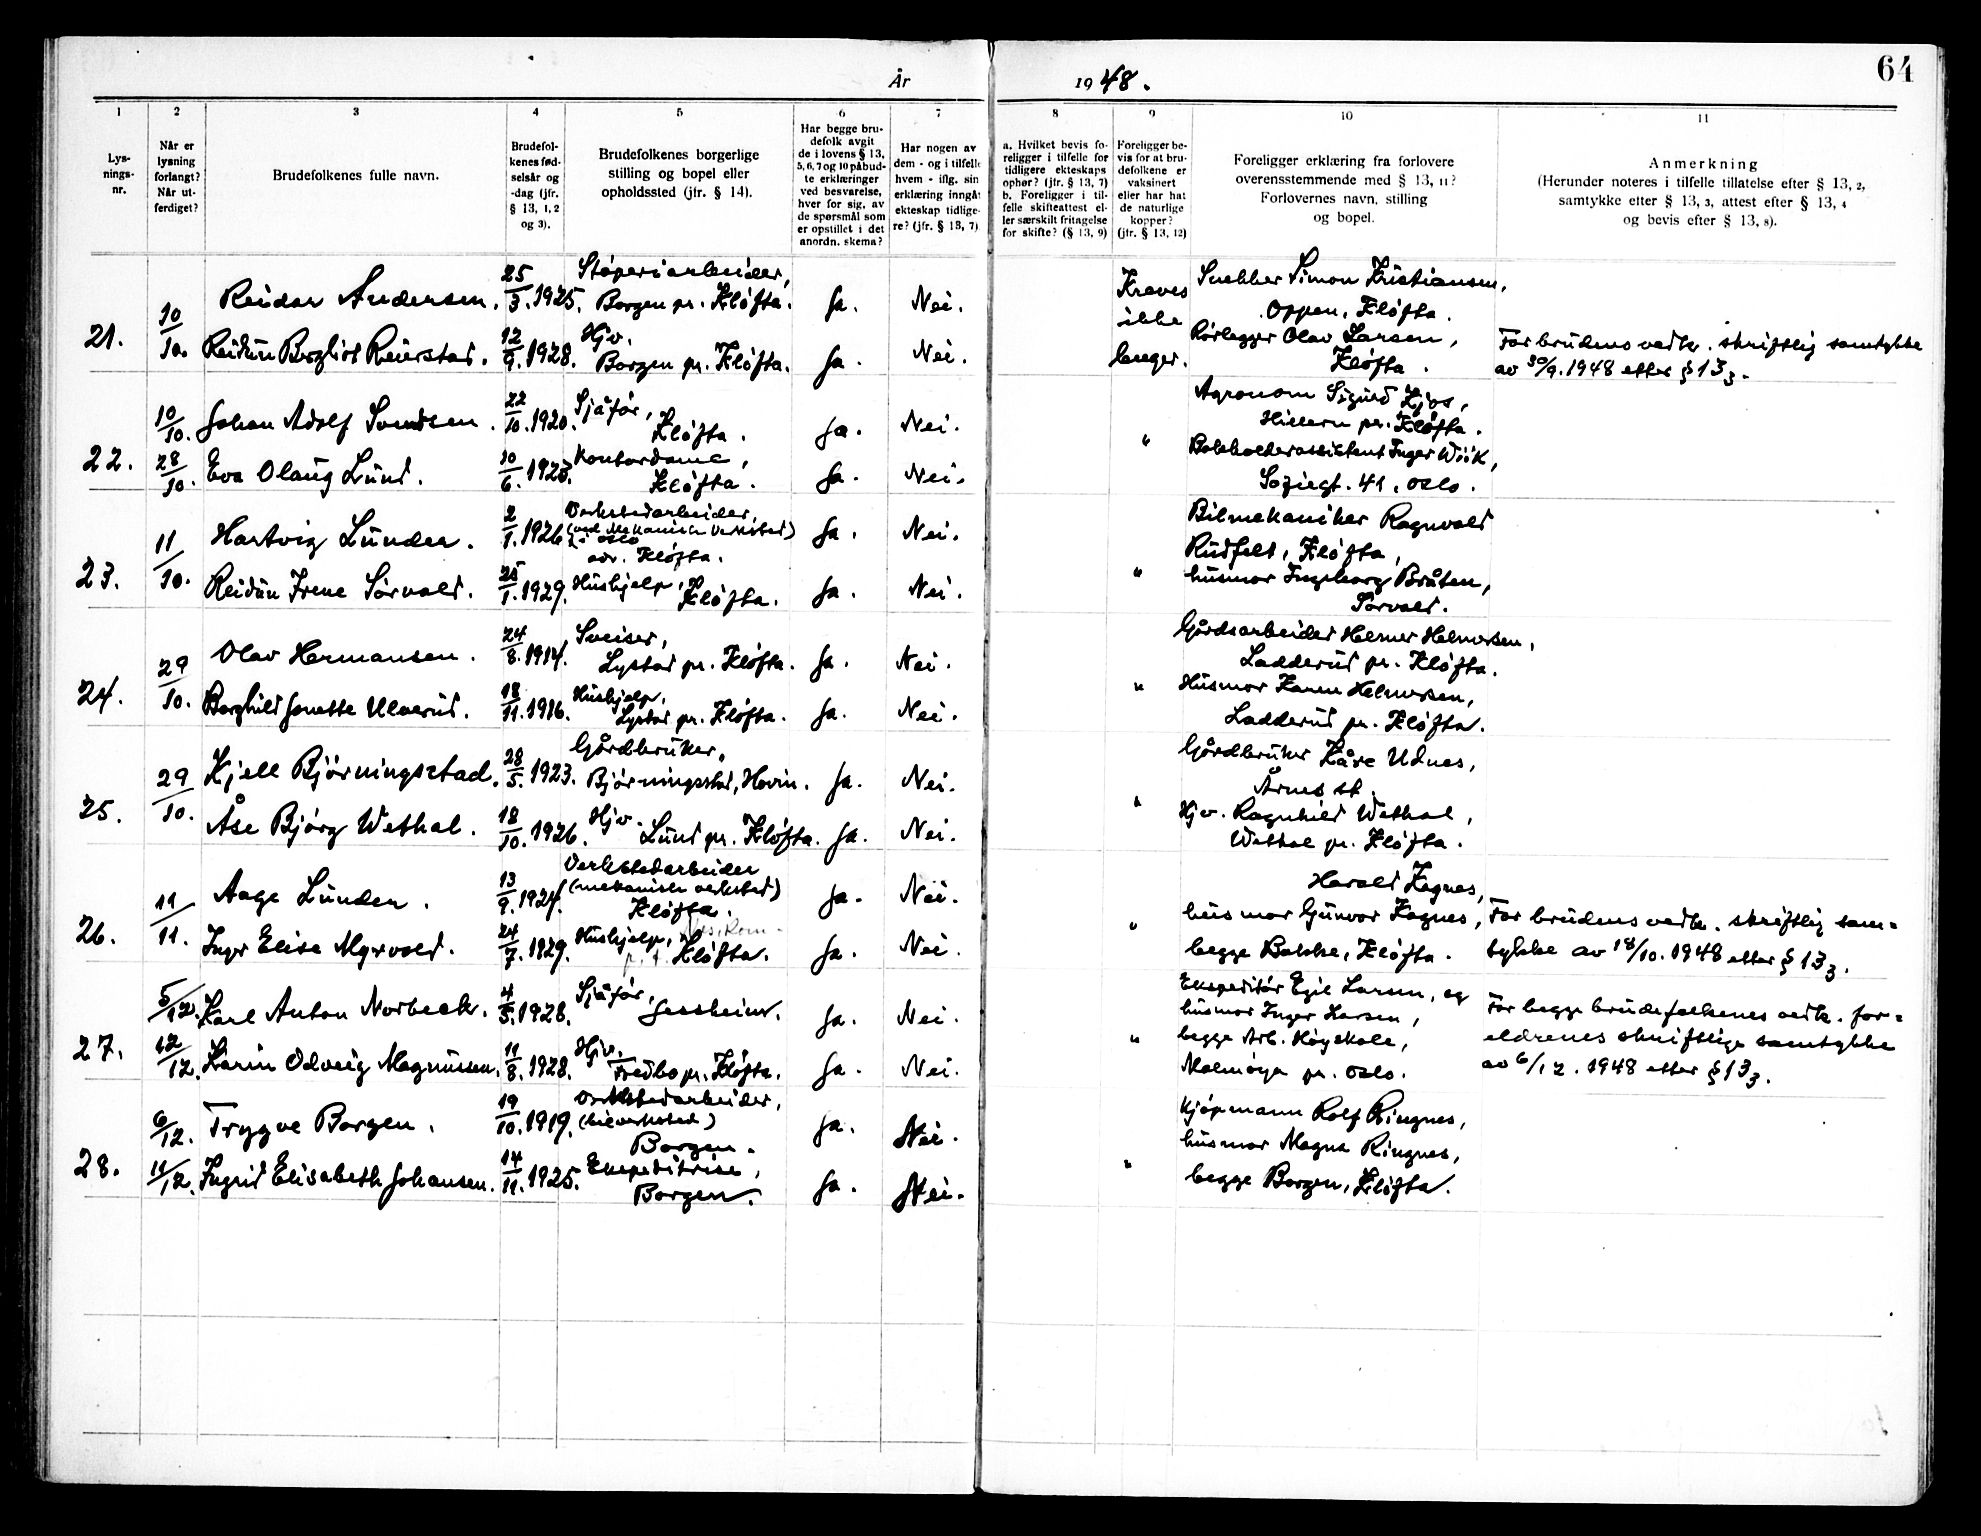 64
År 1948.
1 2 3 4 5 6 7 8 9 10 11
Lys-
nings-
nr.
Når er
lysning
forlangt?
Når ut-
ferdiget?
Brudefolkenes fulle navn.
Brudefol-
kenes fød-
selsår og
-dag (jfr.
§ 13, 1, 2
og 3).
Brudefolkenes borgerlige
stilling og bopel eller
opholdssted (jfr. § 14).
Har begge bru-
defolk avgit
de i lovens § 13,
5, 6, 7 og 10 påbud-
te erklæringer
ved besvarelse,
hver for sig, av
de spørsmål som
er opstillet i det
anordn. skema?
Har nogen av
dem - og i tilfelle
hvem - iflg. sin
erklæring inngåt
ekteskap tidlige-
re? (jfr. § 13, 7)
a. Hvilket bevis fo-
religger i tilfelle for
tidligere ekteskaps
ophør? (jfr. § 13, 7)
b. Foreligger i til-
felle skifteattest el-
ler særskilt fritagelse
for skifte? (§ 13, 9)
Foreligger be-
vis for at bru-
defolkene er
vaksinert
eller har hat
de naturlige
kopper?
(jfr. § 13, 12)
Foreligger erklæring fra forlovere
overensstemmende med § 13, 11?
Forlovernes navn, stilling
og bopel.
Anmerkning
(Herunder noteres i tilfelle tillatelse efter § 13, 2,
samtykke efter § 13, 3, attest efter § 13, 4
og bevis efter § 13, 8).
21. 10/10.
Reidar Andersen. 25/3. 1925. Støperiarbeider,
Borgen pr. Kløfta. Ja. Nei.
Reidun Borgliot Reierstad. 12/9. 1928. Hjv.
Borgen pr. Kløfta. Ja. Nei.
Kreves
ikke
lenger.
Snekker Simon Kristiansen,
Oppen, Kløfta.
Rørlegger Olav Larsen,
Kløfta.
For brudens vedk. skriftlig samtykke
av 30/9. 1948 etter § 13 3.
22. 10/10. 28/10.
Johan Adolf Svendsen. 22/10. 1920. Sjåfør,
Kløfta. Ja. Nei.
Eva Olaug Lund. 10/6. 1923. Kontordame,
Kløfta. Ja. Nei.
"
Agronom Sigurd Ljos,
Hillern pr. Kløfta.
Bokholderassistent Inger Wiik,
Sofiegt. 41, Oslo.
23. 11/10.
Hartvig Lunder. 2/1. 1926. Verkstedarbeider,
(ved Mekanisk Verksted)
i Oslo
adr. Kløfta. Ja. Nei.
Reidun Irene Sørvald. 25/1. 1929. Hushjelp,
Kløfta. Ja. Nei.
"
Bilmekaniker Ragnvald
Rudfelt, Kløfta,
husmor Ingeborg Bråten,
Sørvald.
24. 29/10.
Olav Hermansen. 24/8. 1914. Sveiser,
Lystad pr. Kløfta. Ja. Nei.
Borghild Jonette Ulverud. 18/11. 1916. Hushjelp,
Lystad pr. Kløfta. Ja. Nei.
"
Gårdsarbeider Helmer Helmersen,
Ladderud pr. Kløfta.
Husmor Karen Helmersen,
Ladderud pr. Kløfta.
25. 29/10.
Kjell Bjørningstad. 28/5. 1923. Gårdbruker,
Bjørningstad, Hovin. Ja. Nei.
Åse Bjørg Wethal. 18/10. 1926. Hjv.
Lund pr. Kløfta. Ja. Nei.
"
Gårdbruker Kåre Udnes,
Årnes st.
Hjv. Ragnhild Wethal,
Wethal pr. Kløfta.
26. 11/11.
Aage Lunder. 13/9. 1924. Verkstedarbeider
(mekanisk verksted)
Kløfta. Ja. Nei.
Inger Elise Myrvold. 24/7. 1929. Hushjelp,
Kløfta. Ja. Nei.
"
Harald Kagnes,
husmor Gunvor Kagnes,
begge Bakke, Kløfta.
For brudens vedk. skriftlig sam=
tykke av 18/10. 1948 etter § 13 3.
27. 5/12. 12/12.
Karl Anton Norbeck. 4/5. 1928. Sjåfør,
Jessheim. Ja. Nei.
Karin Odveig Magnussen. 11/8. 1928. Hjv.
Fredbo pr. Kløfta. Ja. Nei.
"
Ekspeditør Egil Larsen, og
husmor Inger Larsen,
begge Arb. Høyskole,
Malmøya pr. Oslo.
For begge brudefolkenes vedk. for=
eldrenes skriftlige samtykke
av 6/12. 1948 etter § 13 3.
28. 6/12. 11/12.
Trygve Borgen. 19/10. 1919. Verkstedarbeider,
(bilverksted)
Borgen. Ja. Nei.
Ingrid Elisabeth Johansen. 14/11. 1925. Ekspeditrise,
Borgen. Ja. Nei.
"
Kjøpmann Rolf Ringnes,
husmor Magna Ringnes,
begge Borgen, Kløfta.